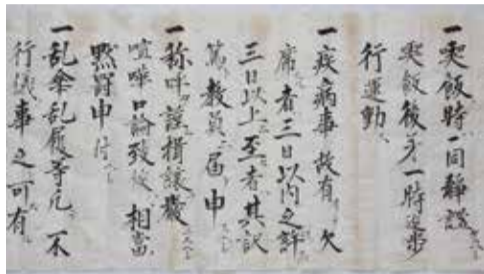 一喫飯時一同静謐
喫飯後第一時遊歩
行運動
一疾病事故有欠
席者三日以内之詳
三日以上至者其訳
教員届申
一称呼謹揖譲
喧呼口論致候相当
黙罰申付
一乱傘乱履等凡不
行儀事之可有